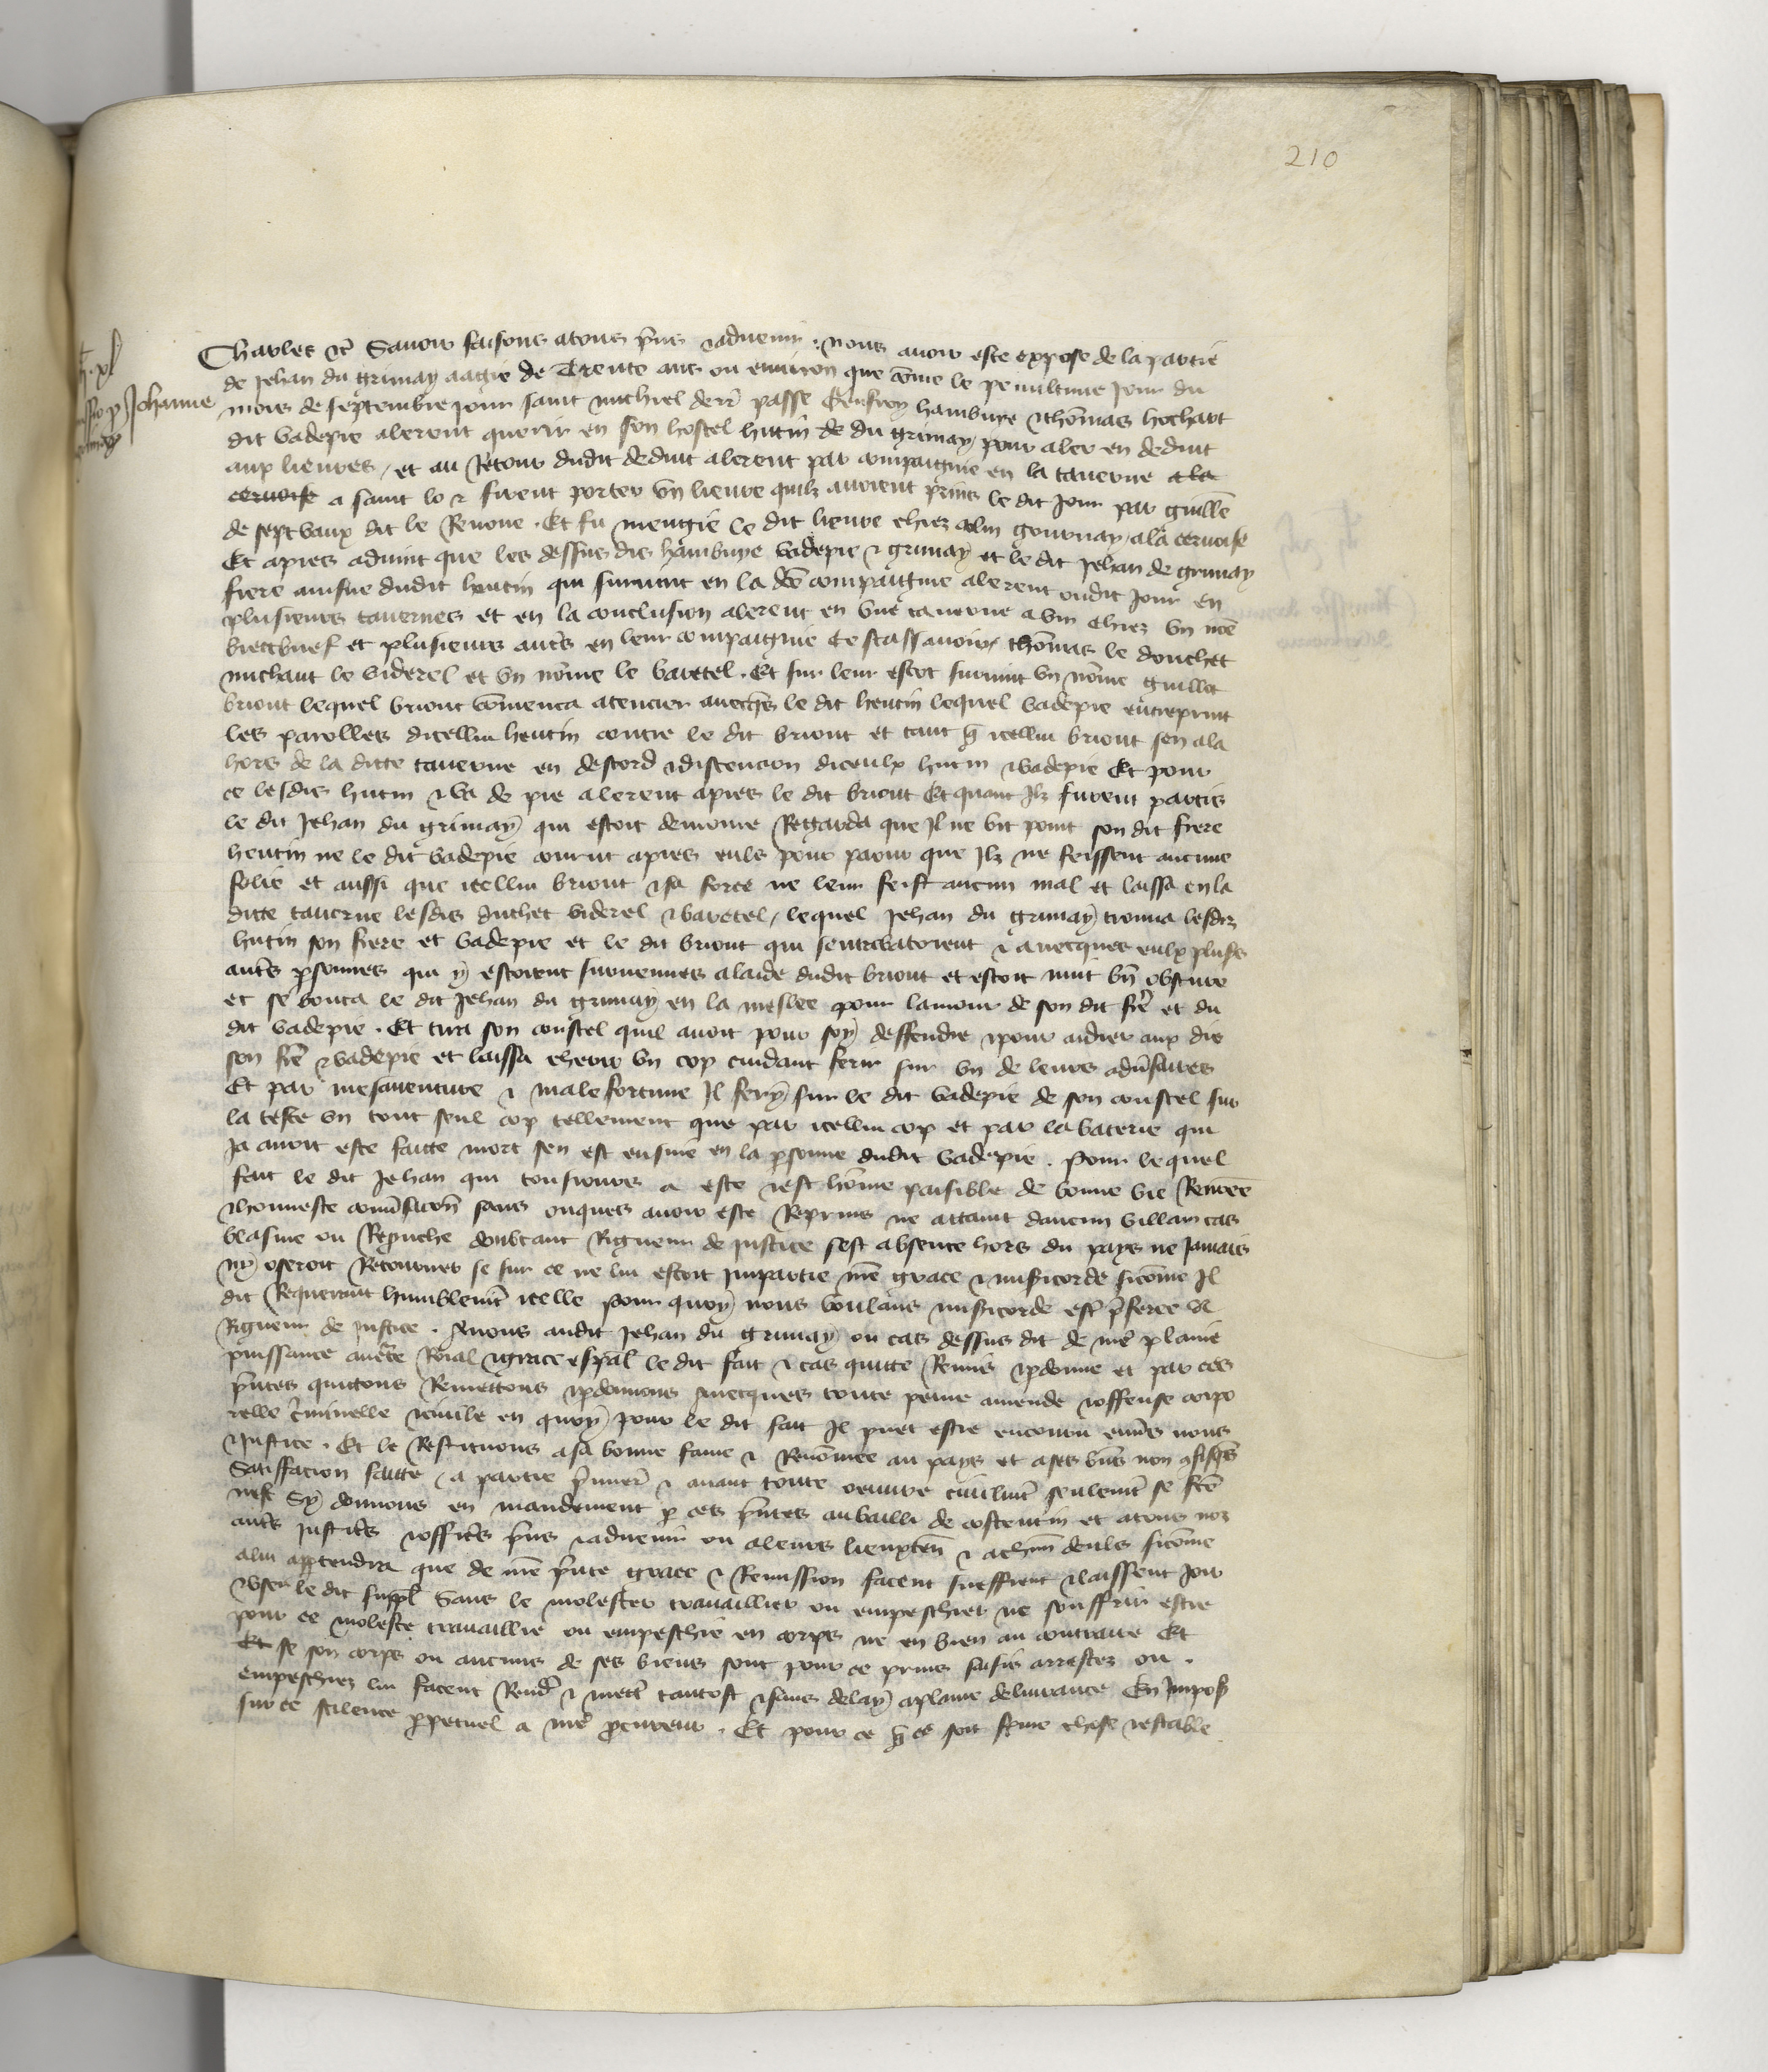 210
Charles etc̄ Savoir faisons a tous p̄ns et advenir . nous avoir este expose de la partie
de Jehan du grimay aagie de Trente ans ou environ que cōme le penultime jour du
Johanne
mois de septembre jour saint michiel derr̄ passe Geufroy hambuye et thōmas hochart
dit vadepie alerent querir en son hostel hutin de du grimay / pour aler en deduit
aux lievres / et au Retour dudit deduit alerent par compaignie en la taverne a la
cervoise a saint lo et firent porter un lievre quilz avoient prins le dit jour par guill̄e
de septvaux dit le Revone . Et fu mengie le dit lievre chiez colin gournay / a la cervoise
Et apres advint que les dessus dis hambuye vadepie et grimay et le dit Jehan de grimay
frere ainsne dudit heutin qui survint en la dc̄e compaignie alerent oudit jour en
plusieurs tavernes et en la conclusion alerent en une taverne a vin chiez un nōe
briettbuef et plusieurs autr̄s en leur compaignie Cestassavoir / thōmas le douchet
michaut le viderel et un nōme le varetel . Et sur leur escot survint un nōme guillot
briout lequel briout cōmenca a tencier avecq̄s le dit heutin lequel vadepie entreprint
les parolles dicellui heutin contre le dit briout et tant q̄ icellui briout sen ala
hors de la ditte taverne en descord et discencion diceulx hutin et vadepie Et pour
ce lesdis hutin et va de pie alerent apres le dit briout Et quant Ilz furent partis
le dit Jehan du grimay qui estoit demoure Regarda que Il ne vit point son dit frere
heutin ne le dit vadepie courut apres euls pour paour que Ilz ne feissent aucune
folie et aussi que icellui briout et sa force ne leur feist aucun mal et laissa en la
ditte taverne lesdis duchet viderel et varetel / lequel Jehan du grimay trouva lesdiz
hutin son frere et vadepie et le dit briout qui sentrebatoient et avecques eulx plus̄s
autr̄s p̄sonnes qui y estoient survenues a laide dudit briout et estoit nuit bn̄ obscure
et se bouta le dit Jehan du grimay en la meslee pour lamour de son dit fr̄e et du
dit vadepie . Et tira son coustel quil avoit pour soy deffendre et pour aidier aux dis
son fr̄e et vadepie et laissa cheoir un cop cuidant ferir sur un de leurs adv̄saires
Et par mesaventure et male fortune Il fery sur le dit vadepie de son coustel sur
la teste un tout seul cop tellement que par icellui cop et par la baterie qui
Ja avoit este faitte mort sen est ensuie en la p̄sonne dudit vadepie . Pour lequel
fait le dit Jehan qui tousjours a este et est hōme paisible de bonne vie Renōee
et honneste conv̄sacion̄ sans onques avoir este Reprins ne attaint daucun villain cas
blasme ou Repruche doubtant Rigueur de justice sest absente hors du pays ne jamais
ny oseroit Retourner se sur ce ne lui estoit Impartie nr̄e grace et misericorde sicōme Il
dit Requerant humblemn̄t icelle Pour quoy nous voulans misericorde est̄ p̄feree a
Rigueur de justice . Avons audit Jehan du grimay ou cas dessus dit de nr̄e plaine
puissance auct̄te Roial et grace esp̄al le dit fait et cas quitte Remis et p̄donne et par ces
p̄ntes quittons Remettons et p̄donnons avecques toute peine amende et offense corpo
relle c̄minelle et civile en quoy pour le dit fait Il puet estre encouru env̄s nous
et justice . Et le Restituons a sa bonne fame et Renōmee au pays et a ses bn̄s non 9fisq̄s
Satiffacion faitte / a partie p̄mier̄ et avant toute oeuvre civilmt̄ seulemt̄ se fc̄e
nest Sy donnons en mandement p̄ ces p̄ntes au bailli de costentin et a tous noz
autr̄s justic̄s et offic̄s p̄ns et advenir ou a leurs lieuxten̄ et a chūn deuls sicōme
a lui app̄tendra que de nr̄e p̄nte grace et Remission facent sueffrent et laissent joir
et user le dit suppl̄ Sans le molester travaillier ou empeschier ne souffrir estre
pour ce moleste travaillie ou empeschie en corps ne en bien au contraire Et
Et se son corps ou aucuns de ses biens sont pour ce prins saisis arrestez ou .
empeschiez lui facent Rendr̄ et mettr̄ tantost et sans delay a plaine delivrance En Impos̄
sur ce scilence p̄petuel a nr̄e p̄cureur . Et pour ce q̄ ce soit ferme chose et estable